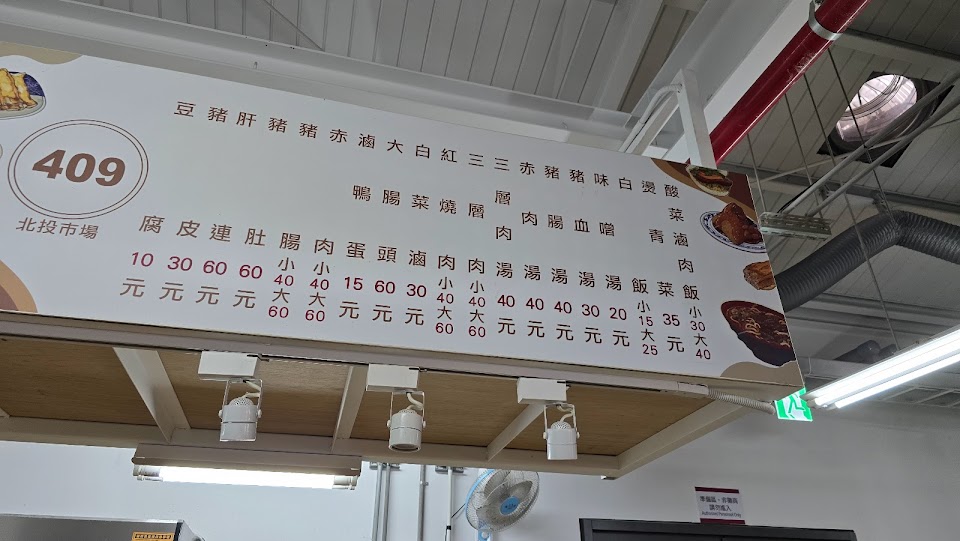 409
北投市場
酸菜滷肉飯小30大40
燙青菜35元
白飯小15大25
味噌湯20元
豬血湯30元
豬腸湯40元
赤肉湯40元
三層肉湯40元
三層肉小40大60
紅燒肉小40大60
白菜滷30元
大腸頭60元
滷鴨蛋15元
赤肉小40大60
豬腸小40大60
豬肚60元
肝連60元
豬皮30元
豆腐10元
請勿進入
Authorized Personnel Only